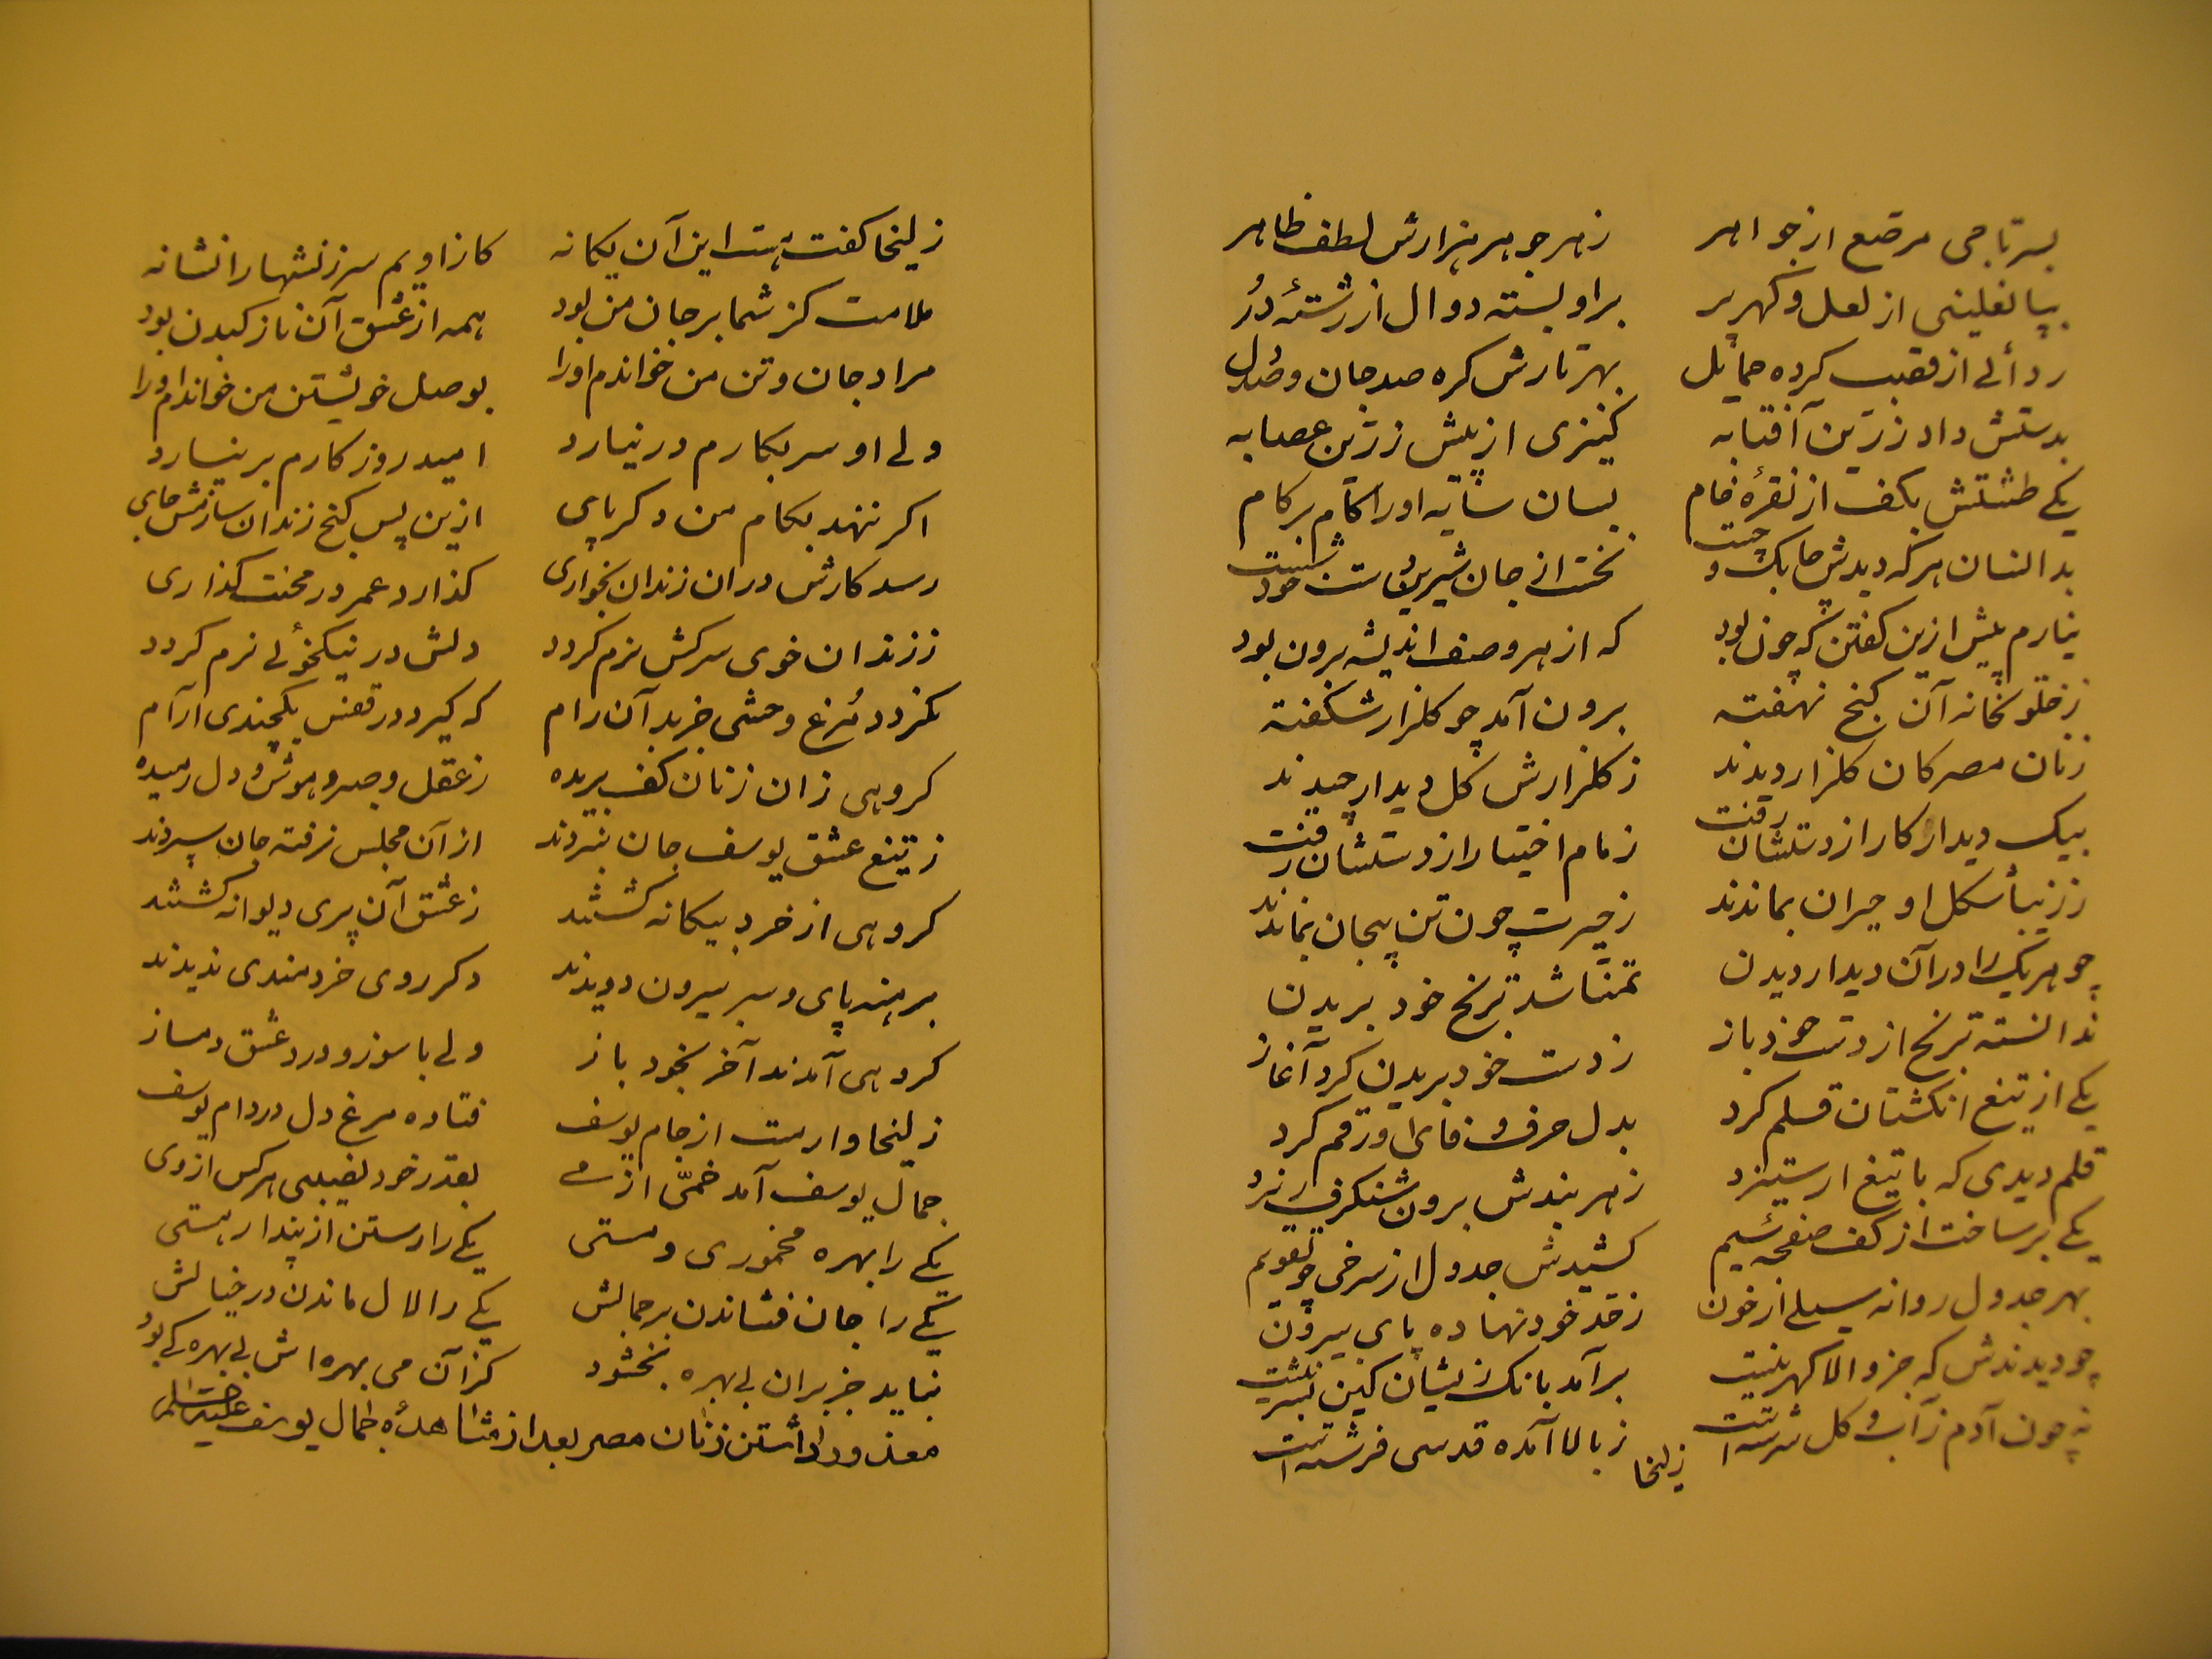 بسر تاجی مرصع از جواهر    زهر جوهر هزارش لطف ظاهر
بپا نعلینی از لعل و کهر پر    براو بسته دوال از رشتهٔ دُر
ردائے از قصب کرده حمایل    بهر تارش کره صد جان و صد دل
بدستش داد زرّین آفتابه    کنیزی از پیش زرّین عصابه
یکے طشتش بکف از نقرهٔ خام    بسان سایه او را کام بر کام
بدانسان هر که دیدش چابک و چست    نخست از جان شیرین دست خود شست
نیارم پیش ازین کفتن که چون بود    که از هر وصف اندیشه برون بود
ز خلوتخانه آن کنج نهفته    برون آمد چو کلزار شکفته
زنان مصر کان کلزار دیدند    ز کلزارش کل دیدار چیدند
بیک دیدار کار از دستشان رفت    زمام اختیار از دستشان رفت
ز زیبا شکل او حیران بماندند    ز حیرت چون تن بیجان بماندند
چو هر یک را در آن دیدار دیدن    تمنّا شد ترنج خود بریدن
ندانسته ترنج از دست خود باز    ز دست خود بریدن کرد آغاز
یکے از تیغ انکشتان قلم کرد    بدل حرف وفای او رقم کرد
قلم دیدی که با تیغ ار ستیزد    ز هر بندش برون شنکرف ریزد
یکے برساخت از کف صفحهٔ سیم    کشیدش جدول از سرخی چو تقویم
بهر جدول روانه سیلے از خون    ز حد خود نهاده پای بیرون
چو دیدندش که جز والا کهر نیست    برآمد بانک زیشان کین بشر نیست
نه چون آدم ز آب و کل سرشته است    ز بالا آمده قدسی فرشته است
زلیخا
زلیخا کفت هست این آن یکانه    کازاویم سرزنشها را نشانه
ملامت کز شما بر جان من بود    همه از عشق آن نازک بدن بود
مراد جان و تن من خواندم او را    بوصل خویشتن من خواندم او را
ولے او سر بکارم در نیارد    امید روزکارم بر نیارد
اکر ننهد بکام من دکر پای    ازین پس کنج زندان سازمش جای
رسد کارش دران زندان بخواری    کذارد عمر در محنت کذاری
ز زندان خوی سرکش نرم کردد    دلش در نیکخوئے نرم کردد
نکردد مُرغ وحشی جز بد آن رام    که کیرد در قفس یکچندی آرام
کروهی زان زنان کف بریده    ز عقل و صبر و هوش و دل رمیده
ز تیغ عشق یوسف جان نبردند    از آن مجلس نرفته جان سپردند
کروهی از خرد بیکانه کشتند    ز عشق آن پری دیوانه کشتند
برهنه پای و سر بیرون دویدند    دکر روی خردمندی ندیدند
کروهی آمدند آخر بخود باز    ولے با سوز و درد عشق دمساز
زلیخا وار مست از جام یوسف    فتاده مرغ دل در دام یوسف
جمال یوسف آمد خمّی از مے    بقدر خود نصیبی هر کس از وی
یکے را بهره مخموری و مستی    یکے را رستن از پندار هستی
یکے را جان فشاندن بر جمالش    یکے را لال ماندن در خیالش
نباید جز بران بے بهره بخشود    کز آن می بهره اش بے بهره کے بود
معذور داشتن زنان مصر بعد از مشاهدهٔ جمال یوسف علیه السلام